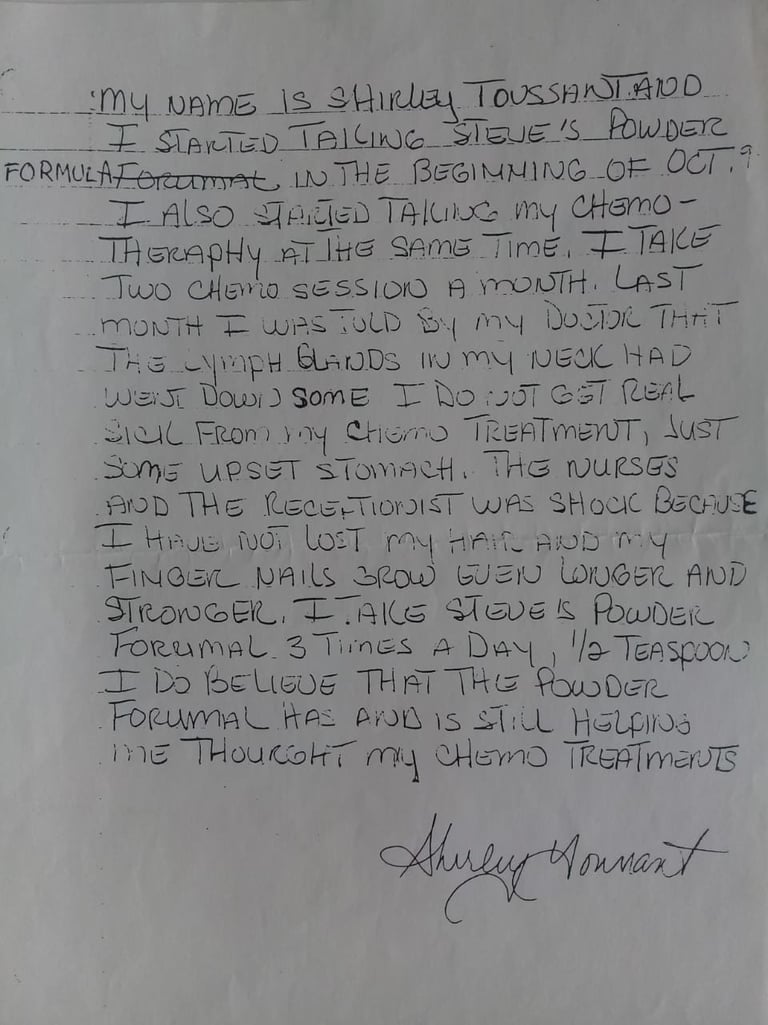 MY NAME IS SHIRLEY TOUSSANT AND
I STARTED TAKING STEVE'S POWDER
FORMULA FORUMAL IN THE BEGINNING OF OCT.
I ALSO STARTED TAKING MY CHEMO-
THERAPHY AT THE SAME TIME. I TAKE
TWO CHEMO SESSION A MONTH. LAST
MONTH I WAS TOLD BY MY DOCTOR THAT
THE LYMPH GLANDS IN MY NECK HAD
WENT DOWN SOME I DO NOT GET REAL
SICK FROM MY CHEMO TREATMENT, JUST
SOME UPSET STOMACH. THE NURSES
AND THE RECEPTIONIST WAS SHOCK BECAUSE
I HAVE NOT LOST MY HAIR AND MY
FINGER NAILS GROW EVEN LONGER AND
STRONGER. I TAKE STEVE'S POWDER
FORUMAL 3 TIMES A DAY, 1/2 TEASPOON
I DO BELIEVE THAT THE POWDER
FORUMAL HAS AND IS STILL HELPING
ME THOUGHT MY CHEMO TREATMENTS
Shirley